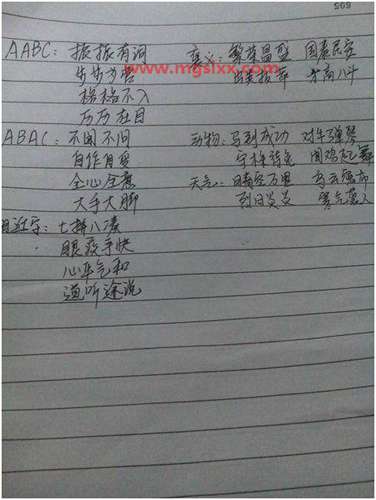 AABC: 振振有词
步步为营
格格不入
历历在目
ABAC: 不闻不问
自作自受
全心全意
大手大脚
近字: 七拼八凑
眼疾手快
心平气和
道听途说
繁荣昌盛 国泰民安
出类拔萃 才高八斗
动物: 马到成功 对牛弹琴
守株待兔 闻鸡起舞
天气: 晴空万里
烈日炎炎 寒气袭人
www.mgslxx.com